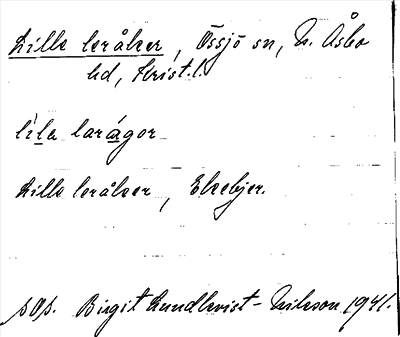 Lille leråker, Össjö sn, N. Åsbo
hd, Krist. l.
líla larágor
Lille leråker, Ekebjer.
sOp. Birgit Lundkvist-Nilsson 1941.